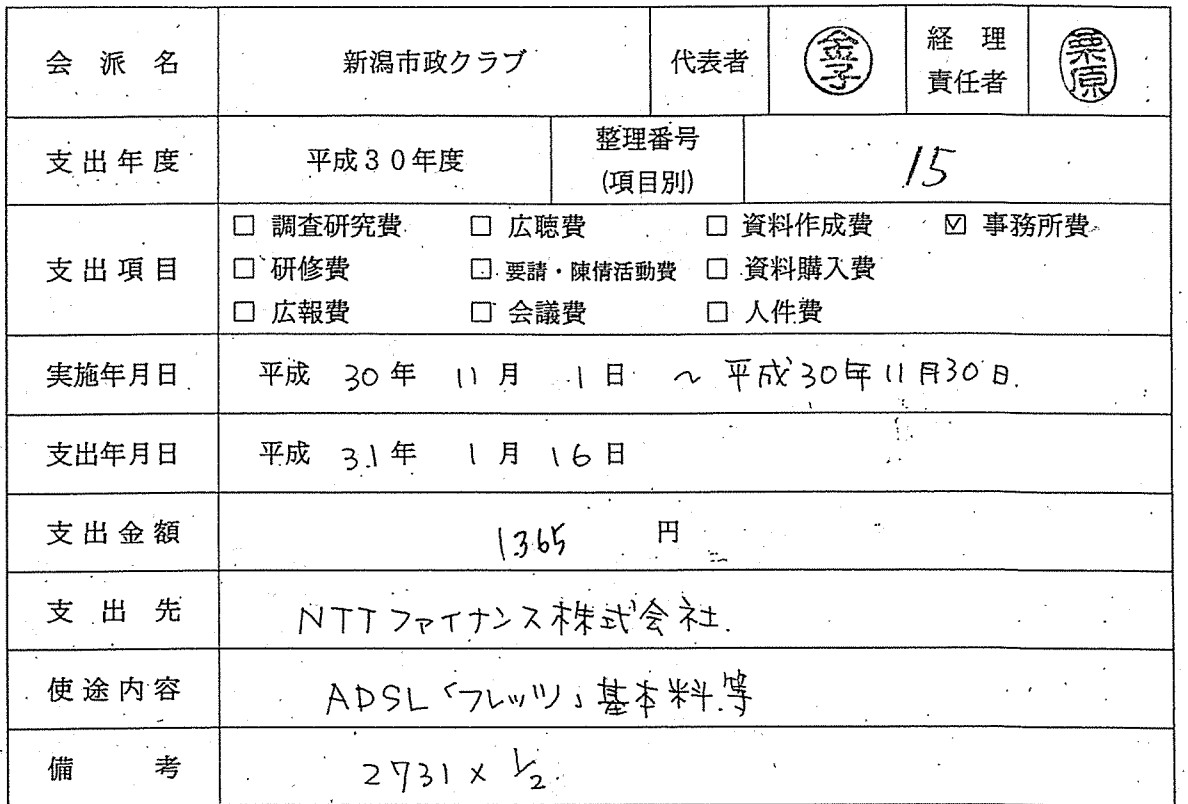 会派名 新潟市政クラブ 代表者 金子 経理責任者 栗原
支出年度 平成30年度 整理番号(項目別) 15
支出項目
□ 調査研究費 □ 広聴費 □ 資料作成費 ☑ 事務所費
□ 研修費 □ 要請・陳情活動費 □ 資料購入費
□ 広報費 □ 会議費 □ 人件費
実施年月日 平成 30年 11月 1日 ~ 平成30年11月30日
支出年月日 平成 31年 1月 16日
支出金額 1365 円
支出先 NTTファイナンス株式会社
使途内容 ADSL「フレッツ」基本料等
備考 2731 × 1/2